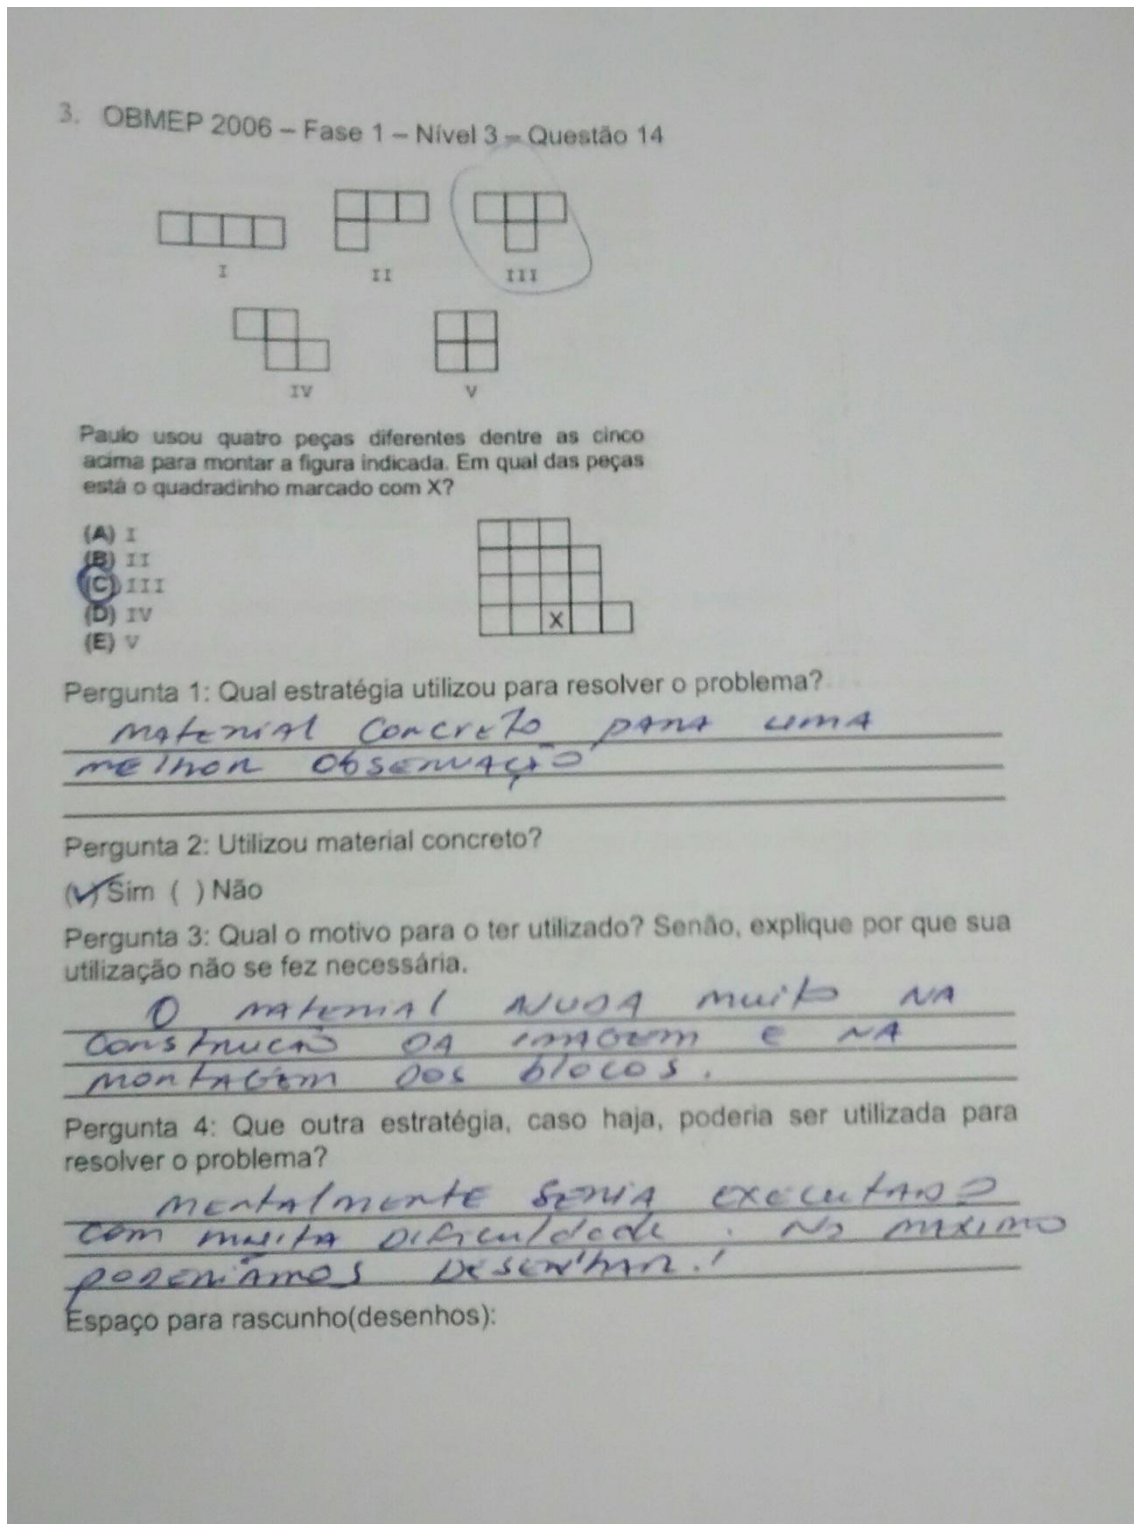 3. OBMEP 2006 – Fase 1 – Nível 3 – Questão 14
I II III
IV V
Paulo usou quatro peças diferentes dentre as cinco
acima para montar a figura indicada. Em qual das peças
está o quadradinho marcado com X?
(A) I
(B) II
(C) III
(D) IV
(E) V
X
Pergunta 1: Qual estratégia utilizou para resolver o problema?
Material Concreto para uma
melhor observação
Pergunta 2: Utilizou material concreto?
(✓) Sim ( ) Não
Pergunta 3: Qual o motivo para o ter utilizado? Senão, explique por que sua
utilização não se fez necessária.
O material ajuda muito na
construção da imagem e na
montagem dos blocos.
Pergunta 4: Que outra estratégia, caso haja, poderia ser utilizada para
resolver o problema?
Mentalmente seria executado
com muita dificuldade. No maximo
poderiamos desenhar.!
Espaço para rascunho(desenhos):